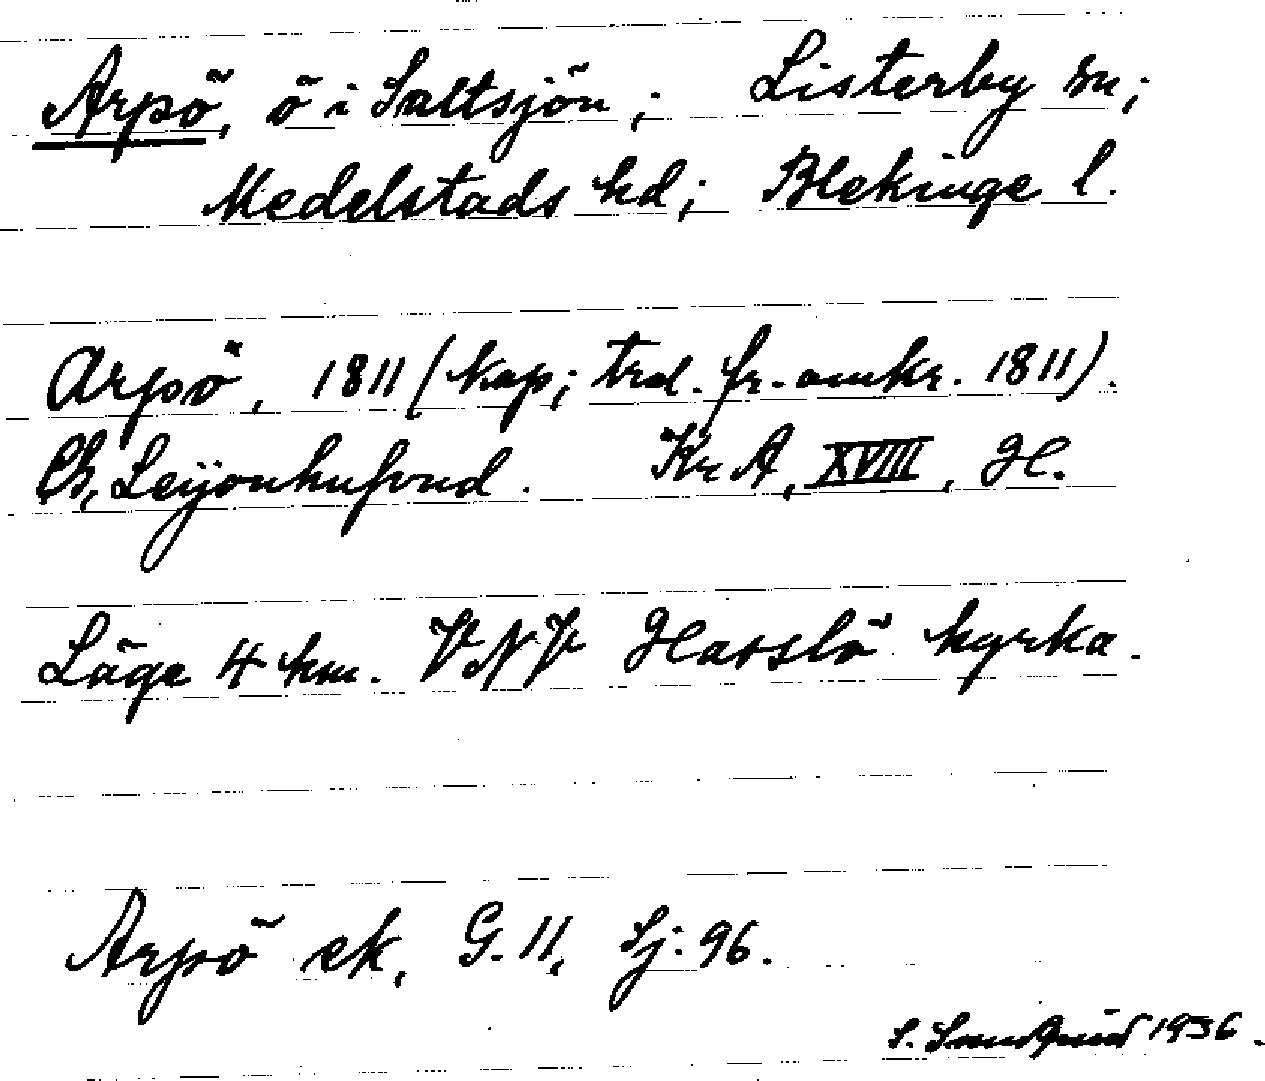 Arpö, ö i Saltsjön; Listerby sn;
Medelstads hd; Blekinge l.
Arpö, 1811 (kap; trol. fr. omkr. 1811).
Ch. Leijonhufvud. Kr A, XVIII, H.
Läge 4 km. VNV Hasslö kyrka.
Arpö ek, G. 11, Sj: 96.
S. 1936.